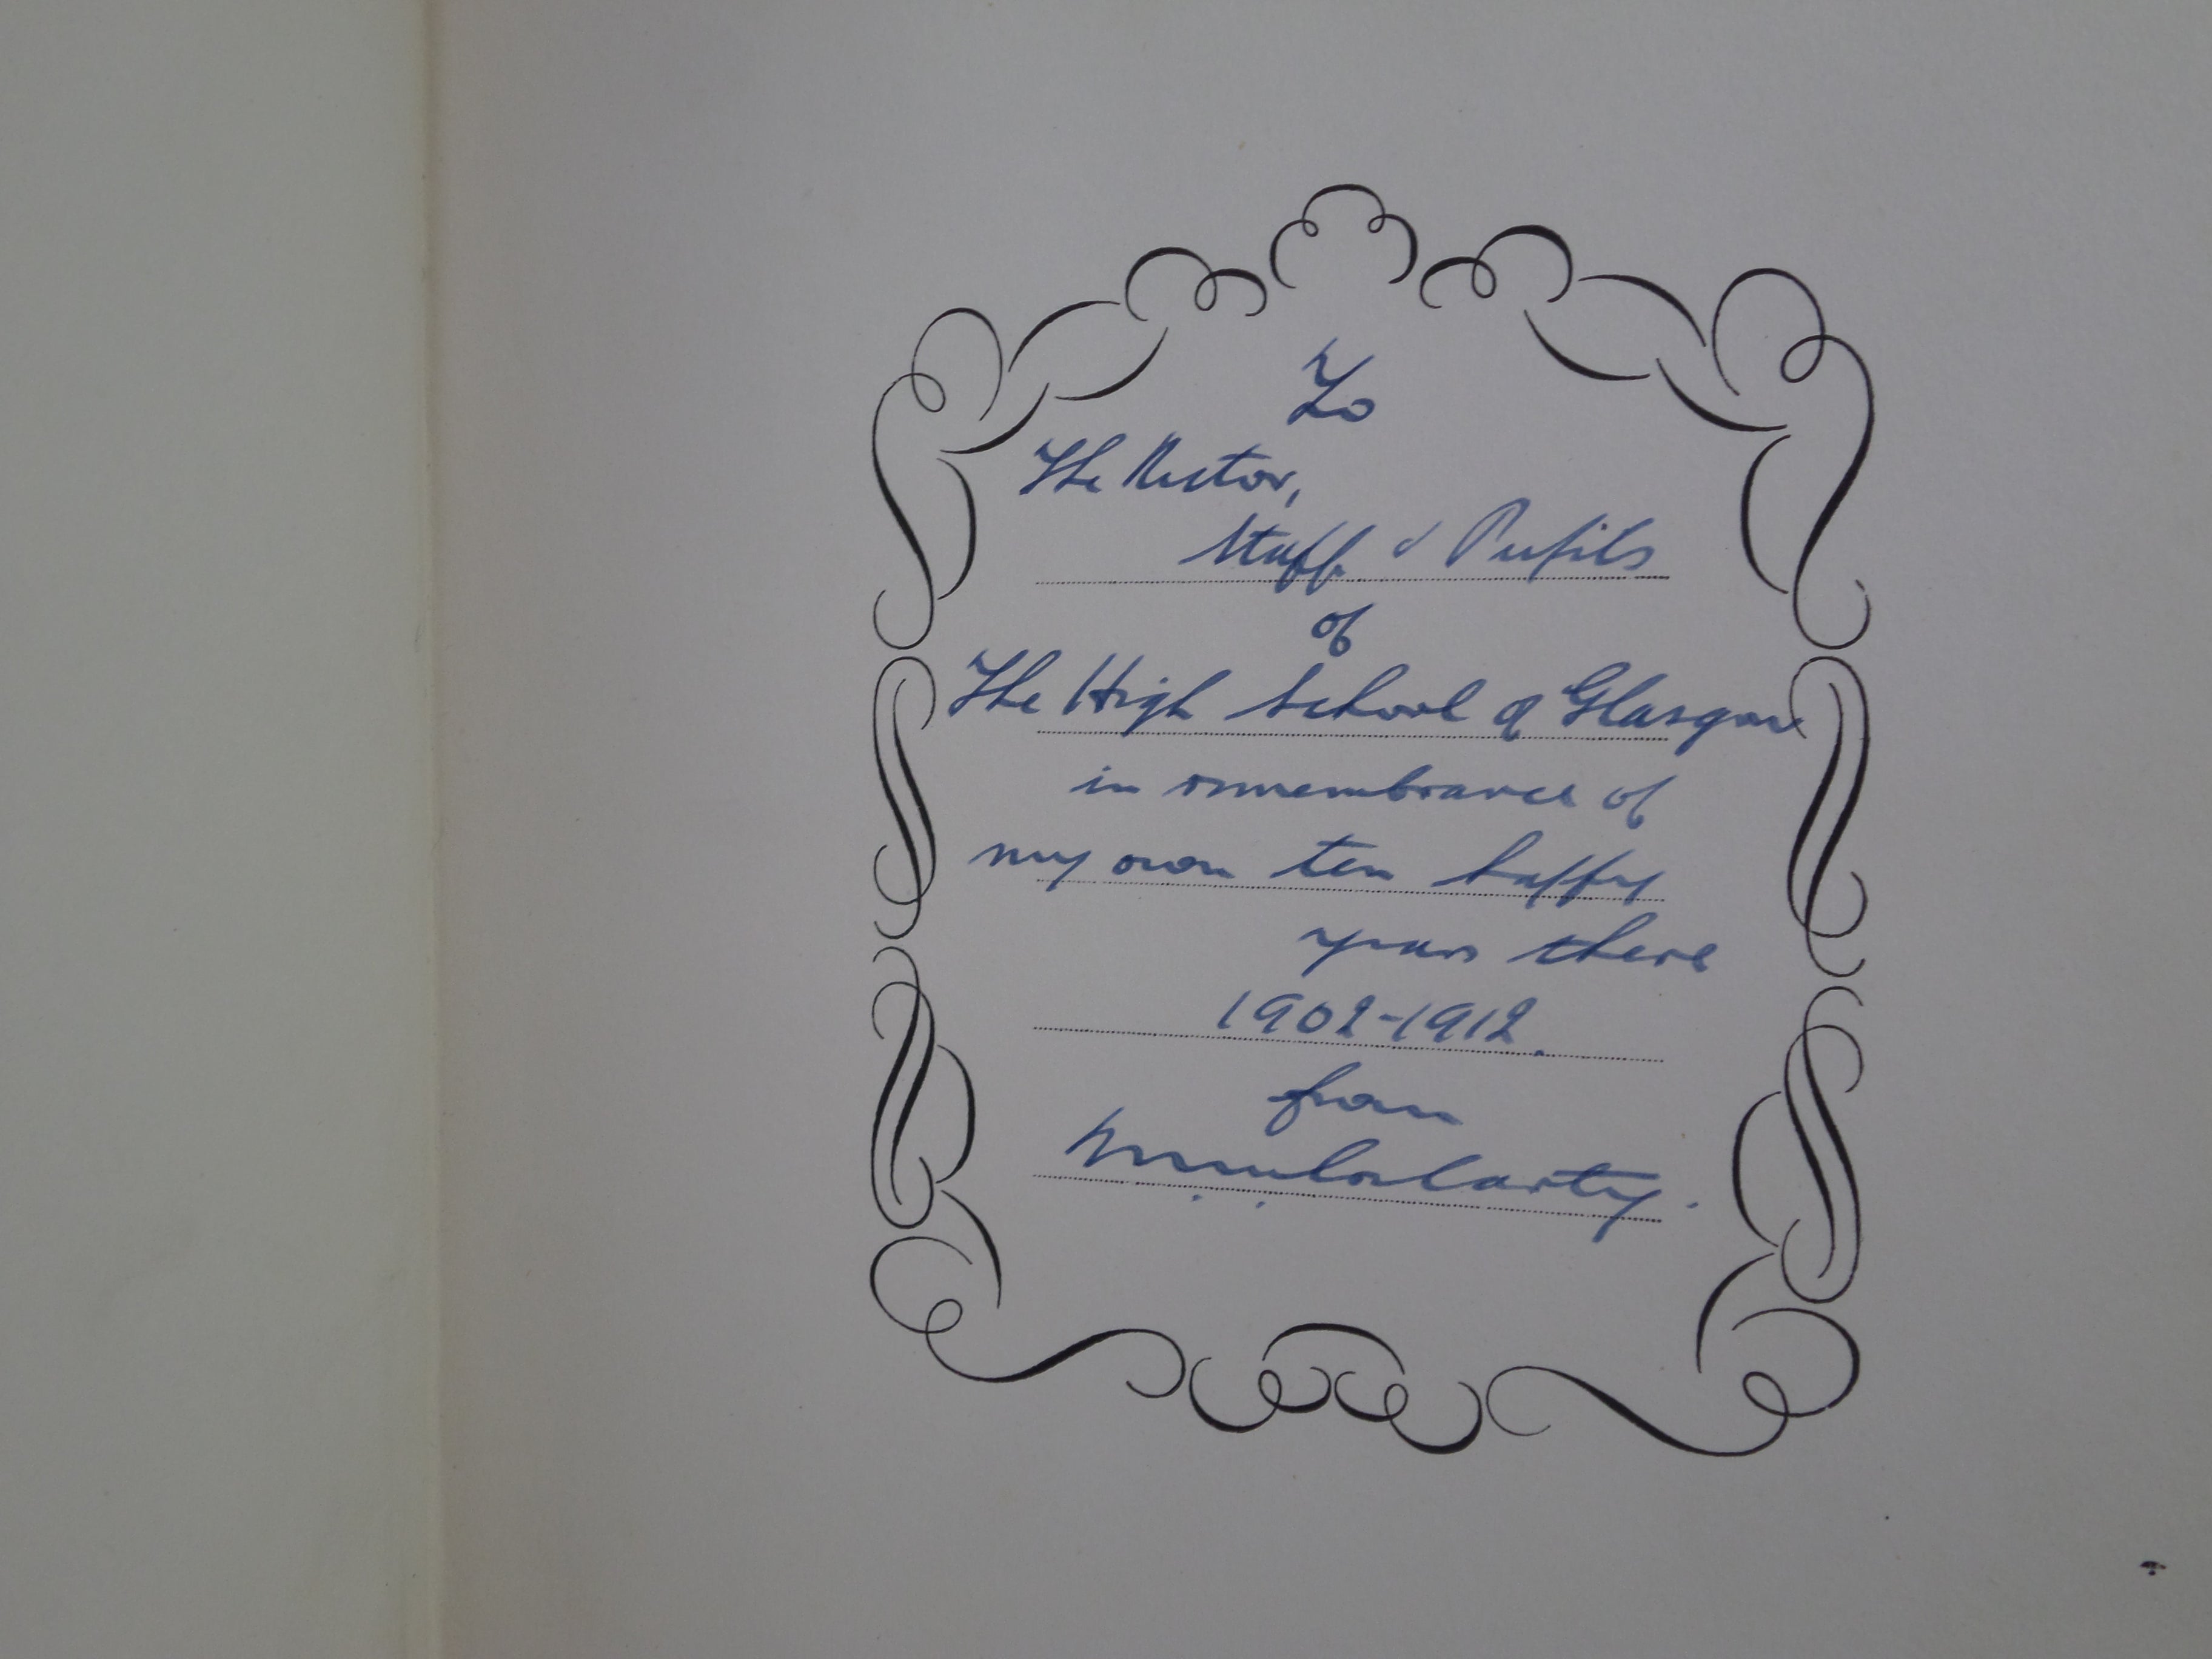 To
The Rector,
Staff & Pupils
of
The High School of Glasgow
in remembrance of
my own ten happy
years there
1902-1912.
from